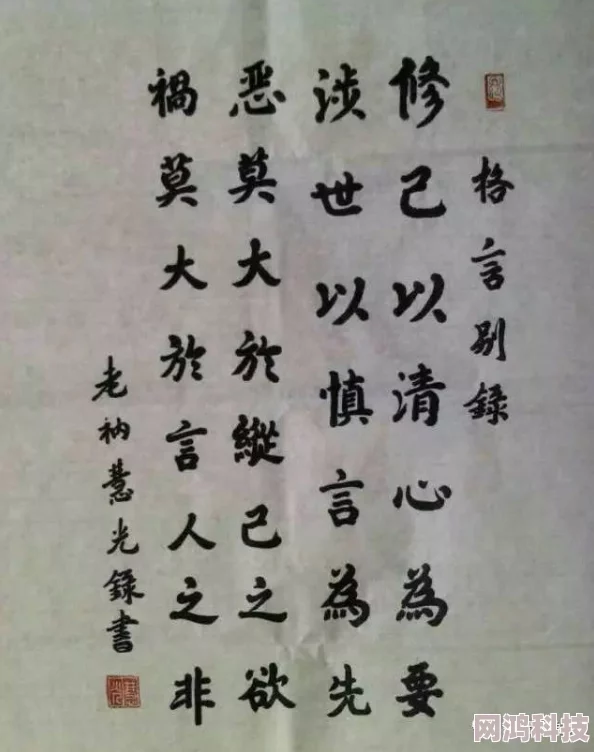 格言别錄
修己以清心為要
涉世以慎言為先
恶莫大於縱己之欲
禍莫大於言人之非
老衲慧光錄書
网鸿科技